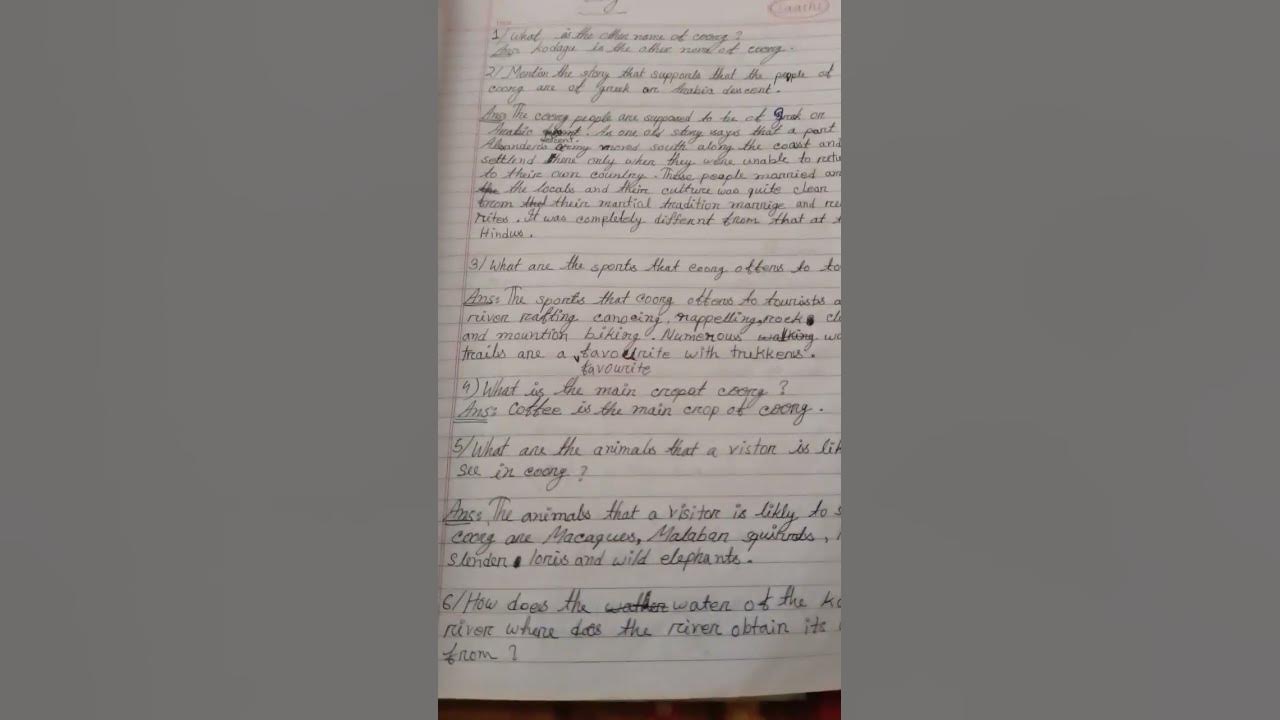 Saachi
1/ What is the other name of coorg?
Ans Kodagu is the other name of coorg.
2/ Mention the story that supports that the people of
coorg are of greek or Arabia descent.
Ans The coorg people are supposed to be of Greek or
Arabic descent. As one old story says that a part
Alexanders army moved south along the coast and
settlend there only when they were unable to retu
to their own country. These people married am
the locals and their culture was quite clear
from their martial tradition marrige and re
rites. It was completely different from that at t
Hindus.
3/ What are the sports that coorg offers to to
Ans: The sports that coorg offers to tourists a
river rafting canoeing, rappelling, rock cli
and mountion biking. Numerous walking wa
trails are a favourite with trekkers.
favourite
4) What is the main cropof coorg?
Ans: Coffee is the main crop of coorg.
5/ What are the animals that a vistor is lik
see in coorg?
Ans: The animals that a visitor is likly to s
coorg are Macaques, Malabar squirrels,
Slender loris and wild elephants.
6/ How does the water of the ka
river where does the river obtain its
from?